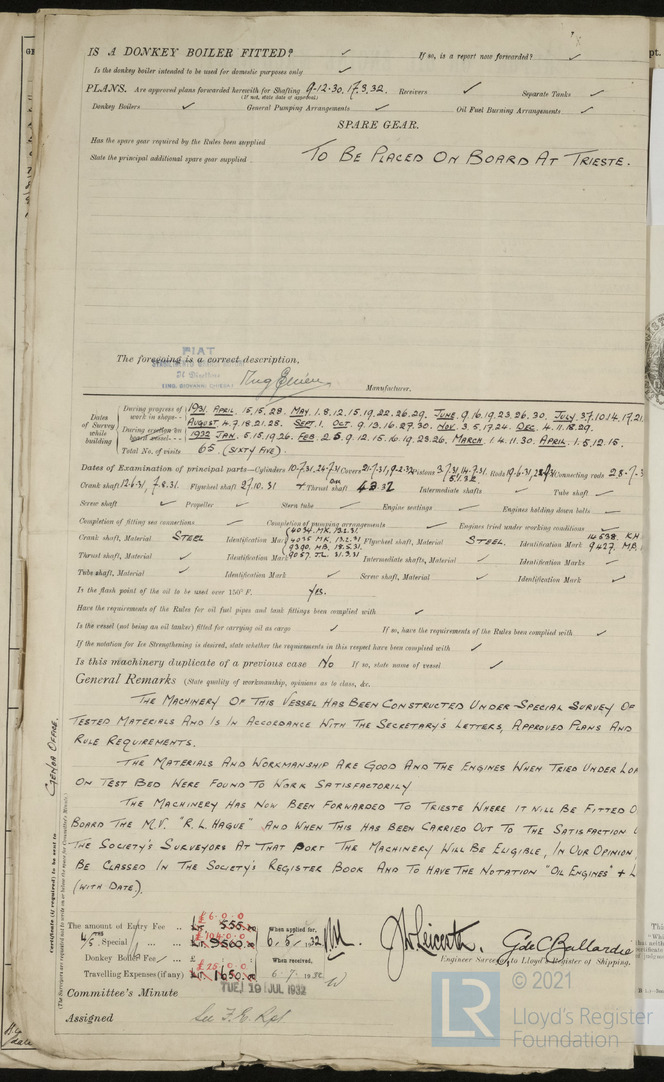 IS A DONKEY BOILER FITTED? ✓ If so, is a report now forwarded? ✓
Is the donkey boiler intended to be used for domestic purposes only ✓
PLANS. Are approved plans forwarded herewith for Shafting 9-12-30. 17.3.32. Receivers ✓ Separate Tanks ✓
(If not, state date of approval)
Donkey Boilers ✓ General Pumping Arrangements ✓ Oil Fuel Burning Arrangements ✓
SPARE GEAR.
Has the spare gear required by the Rules been supplied
State the principal additional spare gear supplied TO BE PLACED ON BOARD AT TRIESTE.
The foregoing is a correct description,
FIAT
Manufacturer.
Dates of Survey while building
During progress of work in shops-- 1931. APRIL. 15, 15, 28. MAY. 1. 8. 12. 15. 19. 22. 26. 29. JUNE. 9. 16. 19. 23. 26. 30. JULY. 3.7.10.14.17.21
During erection on board vessel--- AUGUST. 4.7.18.21.28. SEPT. 1. OCT. 9. 13. 16. 27. 30. NOV. 3. 5. 17. 24. DEC. 4. 11. 18. 29.
1932 JAN. 5. 15. 19. 26. FEB. 2. 5. 9. 12. 15. 16. 19. 23. 26. MARCH. 1. 4. 11. 30. APRIL. 1. 5. 12. 15.
Total No. of visits 65. (SIXTY FIVE).
Dates of Examination of principal parts—Cylinders 10.7.31, 24.7.31 Covers 21.7.31, 9.2.32 Pistons 3.7.31, 14.7.31. 5.1.32 Rods 19.6.31, Connecting rods
Crank shaft 12.6.31, 7.8.31. Flywheel shaft 27.10.31 Thrust shaft Intermediate shafts ✓ Tube shaft ✓
Screw shaft ✓ Propeller ✓ Stern tube ✓ Engine seatings ✓ Engines holding down bolts ✓
Completion of fitting sea connections ✓ Completion of pumping arrangements ✓ Engines tried under working conditions ✓
Crank shaft, Material STEEL Identification Mark 4034. MK. 13.2.31. 4035 MK. 13.2.31 9390. MB. 18.5.31. 9057. J.L. 31.3.31 Flywheel shaft, Material STEEL. Identification Mark 14538. KH. 9427. MB.
Thrust shaft, Material ✓ Identification Mark Intermediate shafts, Material ✓ Identification Marks ✓
Tube shaft, Material ✓ Identification Mark ✓ Screw shaft, Material ✓ Identification Mark ✓
Is the flash point of the oil to be used over 150° F. Yes.
Have the requirements of the Rules for oil fuel pipes and tank fittings been complied with ✓
Is the vessel (not being an oil tanker) fitted for carrying oil as cargo ✓ If so, have the requirements of the Rules been complied with ✓
If the notation for Ice Strengthening is desired, state whether the requirements in this respect have been complied with ✓
Is this machinery duplicate of a previous case No If so, state name of vessel ✓
General Remarks (State quality of workmanship, opinions as to class, &c.
THE MACHINERY OF THIS VESSEL HAS BEEN CONSTRUCTED UNDER SPECIAL SURVEY OF
TESTED MATERIALS AND IS IN ACCORDANCE WITH THE SECRETARY'S LETTERS, APPROVED PLANS AND
RULE REQUIREMENTS.
THE MATERIALS AND WORKMANSHIP ARE GOOD AND THE ENGINES WHEN TRIED UNDER LOA
ON TEST BED WERE FOUND TO WORK SATISFACTORILY
THE MACHINERY HAS NOW BEEN FORWARDED TO TRIESTE WHERE IT WILL BE FITTED O
BOARD THE M.V. "R. L. HAGUE" AND WHEN THIS HAS BEEN CARRIED OUT TO THE SATISFACTION O
THE SOCIETY'S SURVEYORS AT THAT PORT THE MACHINERY WILL BE ELIGIBLE, IN OUR OPINION,
BE CLASSED IN THE SOCIETY'S REGISTER BOOK AND TO HAVE THE NOTATION "OIL ENGINES" + L
(WITH DATE).
GENOA OFFICE.
Certificate (if required) to be sent to
(The Surveyors are requested not to write on or below the space for Committee's Minute.)
The amount of Entry Fee £ 6.0.0 555. When applied for,
4/5ths Special £104.0.0 9500. 6.5.1932
Donkey Boiler Fee £ When received,
Travelling Expenses (if any) 1650. 6.7.1932
J W Leicester. G de C Ballardie
Engineer Surveyor to Lloyd's Register of Shipping.
Committee's Minute TUE. 19 JUL 1932
Assigned See F.E. Rpt
© 2021
LR
Lloyd's Register
Foundation